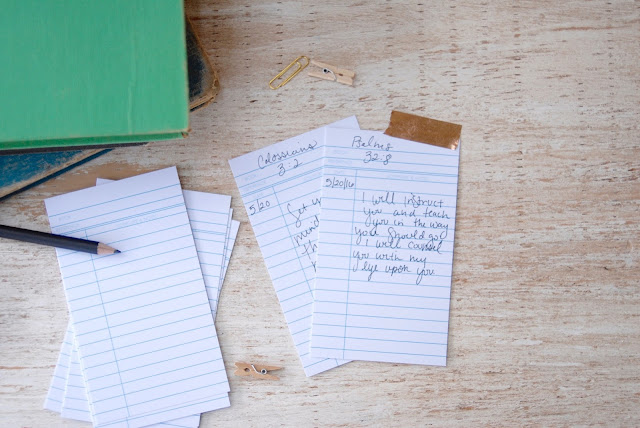 Colossians
3:2
5/20
Set
mind
Psalms
32:8
5/20/16
I will instruct
you and teach
you in the way
you should go
I will counsel
you with my
eye upon you